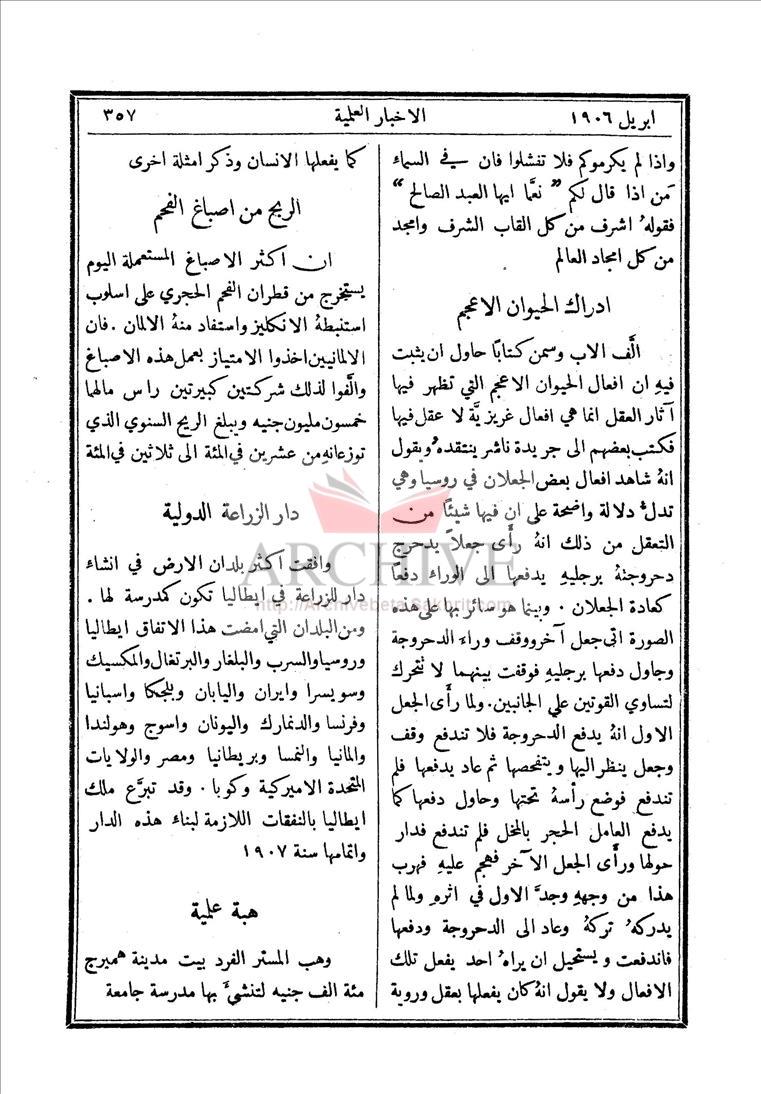 ابريل ١٩٠٦
الاخبار العلمية
٣٥٧
واذا لم يكرموكم فلا تفشلوا فان في السماء
مَن اذا قال لكم ” نعمَّا ايها العبد الصالح “
فقولهُ اشرف من كل القاب الشرف وامجد
من كل امجاد العالم
ادراك الحيوان الاعجم
الَّف الاب وسمن كتابًا حاول ان يثبت
فيهِ ان افعال الحيوان الاعجم التي تظهر فيها
آثار العقل انما هي افعال غريزيَّة لا عقل فيها
فكتب بعضهم الى جريدة ناشر ينتقده ويقول
انهُ شاهد افعال بعض الجعلان في روسيا وهي
تدلُّ دلالة واضحة على ان فيها شيئًا من
التعقل من ذلك انهُ رأَى جعلاً يدحرج
دحروجتهُ برجليهِ يدفعها الى الوراء دفعًا
كعادة الجعلان ٠ وبينما هو سائر بها على هذه
الصورة اتى جعل آخر ووقف وراء الدحروجة
وحاول دفعها برجليهِ فوقفت بينهما لا تتحرك
لتساوي القوتين على الجانبين. ولما رأَى الجعل
الاول انهُ يدفع الدحروجة فلا تندفع وقف
وجعل ينظر اليها ويتفحصها ثم عاد يدفعها فلم
تندفع فوضع رأسهُ تحتها وحاول دفعها كما
يدفع العامل الحجر بالمخل فلم تندفع فدار
حولها ورأَى الجعل الآخر فهجم عليهِ فهرب
هذا من وجههِ وجدَّ الاول في اثرهِ ولما لم
يدركهُ تركهُ وعاد الى الدحروجة ودفعها
فاندفعت ويستحيل ان يراهُ احد يفعل تلك
الافعال ولا يقول انهُ كان يفعلها بعقل وروية
كما يفعلها الانسان وذكر امثلة اخرى
الربح من اصباغ الفحم
ان اكثر الاصباغ المستعملة اليوم
يستخرج من قطران الفحم الحجري على اسلوب
استنبطهُ الانكليز واستفاد منهُ الالمان . فان
الالمانيين اخذوا الامتياز بعمل هذه الاصباغ
والَّفوا لذلك شركتين كبيرتين راس مالهما
خمسون مليون جنيه ويبلغ الربح السنوي الذي
توزعانهِ من عشرين في المئة الى ثلاثين في المئة
دار الزراعة الدولية
وافقت اكثر بلدان الارض في انشاء
دار للزراعة في ايطاليا تكون كمدرسة لها .
ومن البلدان التي امضت هذا الاتفاق ايطاليا
وروسيا والسرب والبلغار والبرتغال والمكسيك
وسويسرا وايران واليابان وبلجكا واسبانيا
وفرنسا والدنمارك واليونان واسوج وهولندا
والمانيا والنمسا وبريطانيا ومصر والولايات
المتحدة الاميركية وكوبا ٠ وقد تبرَّع ملك
ايطاليا بالنفقات اللازمة لبناء هذه الدار
واتمامها سنة ١٩٠٧
هبة علمية
وهب المستر الفرد بيت مدينة همبرج
مئة الف جنيه لتنشئَ بها مدرسة جامعة
ARCHIVE
http://Archivebeta.Sakhrit.com